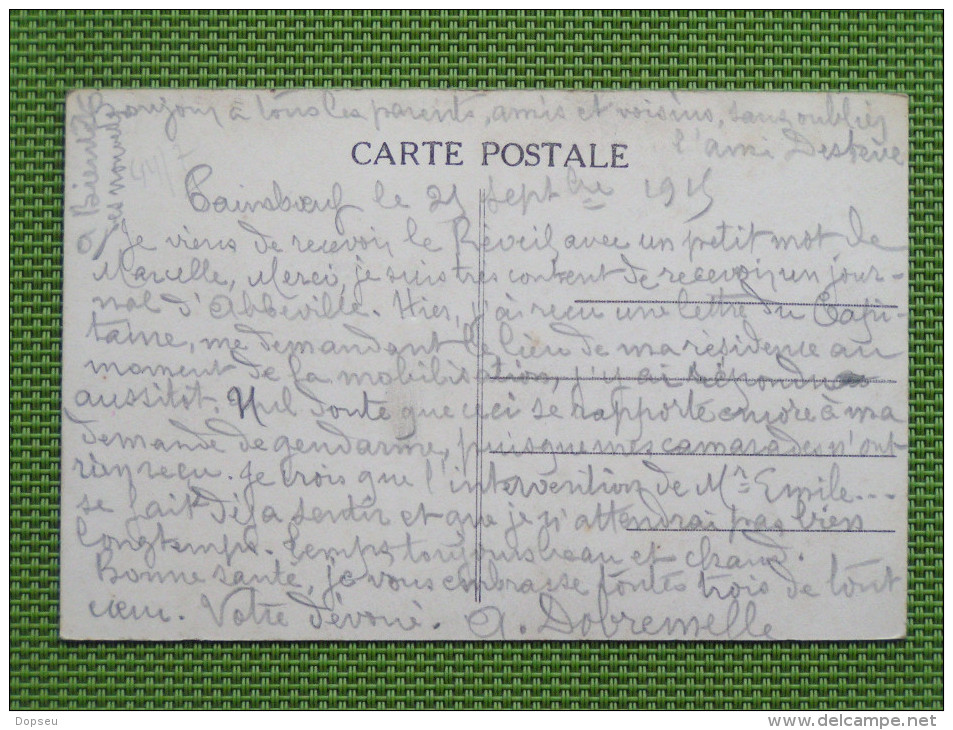 Bonjour à tous les parents, amis et voisins, sans oublier
l'ami Desteve
CARTE POSTALE
à Bientôt
des nouvelles
Cainsbœuf le 21 septbre 1915
Je viens de recevoir le Réveil, avec un petit mot de
Marcelle, Merci, je suis très content de recevoir un jour-
nal d'Abbeville. Hier, j'ai reçu une lettre du Capi-
taine, me demandant le lieu de ma résidence au
moment de la mobilisation, j'y ai répondu
aussitôt. Nul doute que ceci se rapporte encore à ma
demande de gendarme, puisque mes camarades n'ont
rien reçu. Je crois que l'intervention de Mr Emile...
se fait déjà sentir et que je n'attendrai pas bien
longtemps. Temps toujours beau et chaud.
Bonne santé, je vous embrasse toutes trois de tout
cœur. Votre dévoué. A. Dobremelle
Dopseu
delcampe.net